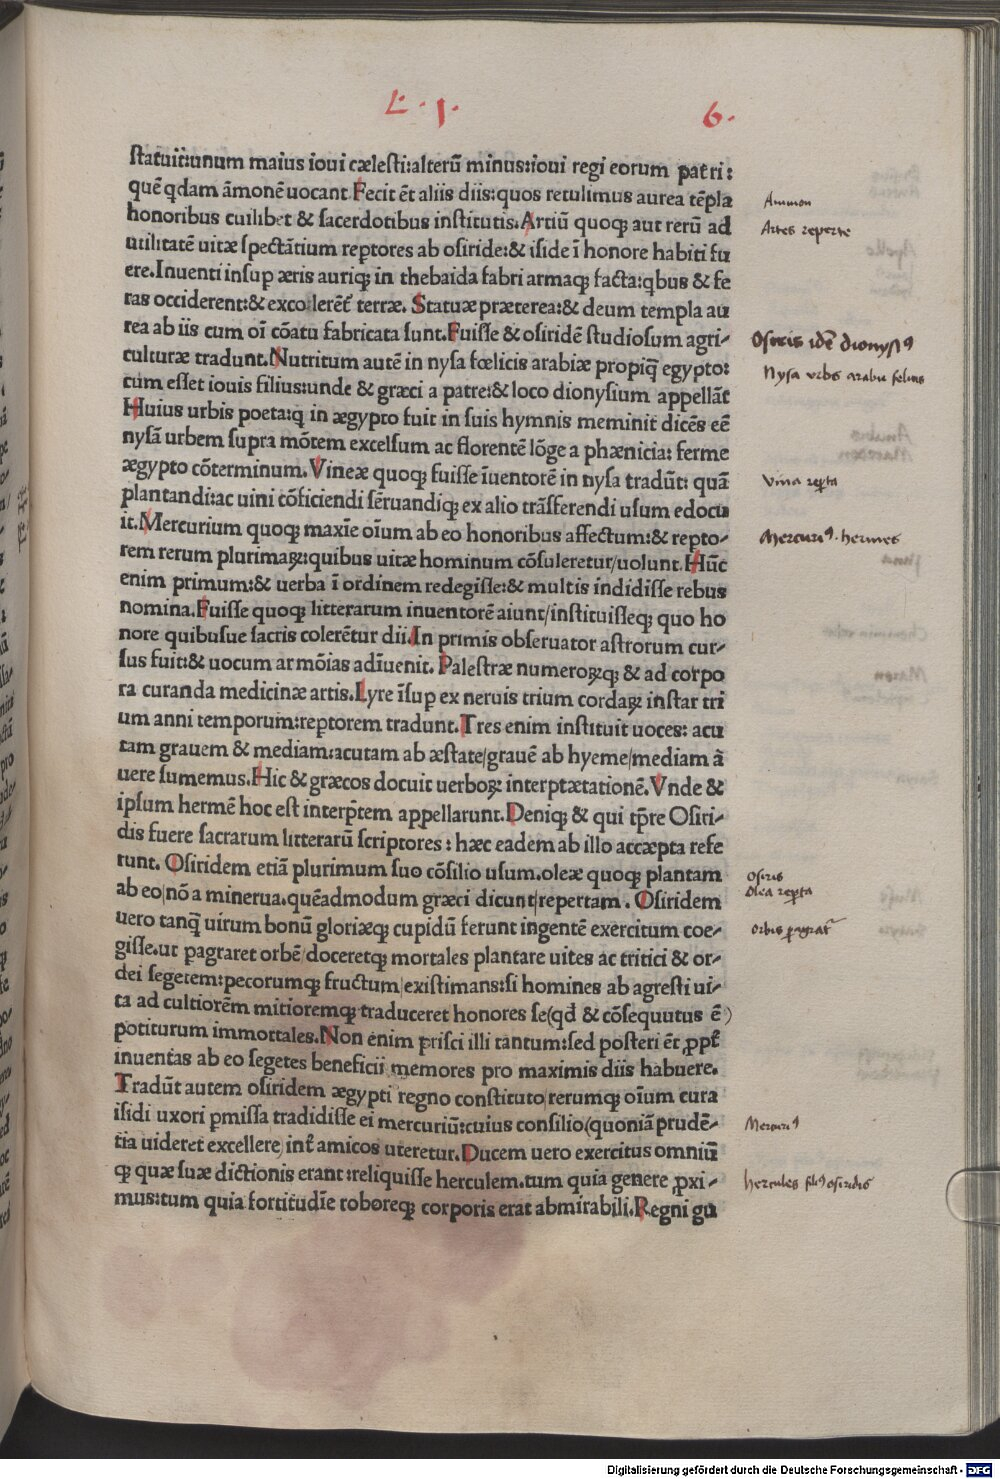 L. 1. 6.
statuit:unum maius ioui cælesti:alterū minus:ioui regi eorum patri:
quē q̇dam āmonē uocant Fecit ēt aliis diis:quos retulimus aurea tēpla
Ammon
honoribus cuilibet & sacerdotibus institutis.Artiū quoq; aut rerū ad
Artes reperte
utilitatē uitæ spectātium reptores ab osiride:& iside ī honore habiti fu
ere.Inuenti insup æris auriq; in thebaida fabri armaq; facta:qbus & fe
ras occiderent:& excolerēt terræ. Statuæ præterea:& deum templa au
rea ab iis cum oī cōatu fabricata sunt.Fuisse & osiridē studiosum agri-
Osiris idē dionysꝰ
culturæ tradunt.Nutritum autē in nysa fœlicis arabiæ propiq̄ egypto:
Nysa vrbs arabie felicis
cum esset iouis filius:unde & græci a patre:& loco dionysium appellāt
Huius urbis poeta:q in ægypto fuit in suis hymnis meminit dicēs eē
nysā urbem supra mōtem excelsum ac florentē lōge a phænicia: ferme
ægypto cōterminum.Vineæ quoq; fuisse īuentorē in nysa tradūt: quā
Vina repta
plantandi:ac uini cōficiendi sēruandiq; ex alio trāsferendi usum edocu
it.Mercurium quoq; maxīe oīum ab eo honoribus affectum:& repto-
Mercuriꝰ. hermes
rem rerum plurimaꝝ:quibus uitæ hominum cōsuleretur/uolunt.Hūc
enim primum:& uerba ī ordinem redegisse:& multis indidisse rebus
nomina.Fuisse quoq; litterarum inuentorē aiunt/instituisseq; quo ho
nore quibusue sacris colerētur dii.In primis obseruator astrorum cur-
sus fuit:& uocum armōias adīuenit. Palestræ numeroꝝq; & ad corpo
ra curanda medicinæ artis.Lyre īsup ex neruis trium cordaꝝ instar tri
um anni temporum:reptorem tradunt.Tres enim instituit uoces: acu
tam grauem & mediam:acutam ab æstate/grauē ab hyeme/mediam ā
uere sumemus.Hic & græcos docuit uerboꝝ interptætationē.Vnde &
ipsum hermē hoc est interp̄tem appellarunt.Deniq; & qui tp̄re Osiri-
dis fuere sacrarum litterarū scriptores : hæc eadem ab illo accæpta refe
runt. Osiridem etiā plurimum suo cōsilio usum.oleæ quoq; plantam
Osiris
ab eo/nō a minerua.quēadmodum græci dicunt/repertam. Osiridem
Olea repta
uero tanq̄ uirum bonū gloriæq; cupidū ferunt ingentē exercitum coe-
Orbis ꝑagrat̄
gisse.ut pagraret orbē/doceretq; mortales plantare uites ac tritici & or-
dei segetem:pecorumq; fructum/existimans:si homines ab agresti ui-
ta ad cultiorēm mitioremq; traduceret honores se(qd̄ & cōsequutus ē)
potiturum immortales.Non enim prisci illi tantum:sed posteri ēt ꝓpt̄
inuentas ab eo segetes beneficii memores pro maximis diis habuere.
Tradūt autem osiridem ægypti regno constituto/rerumq; oīum cura
isidi uxori pmissa tradidisse ei mercuriū:cuius consilio(quoniā prudē-
Mercuriꝰ
tia uideret excellere)int̄ amicos uteretur.Ducem uero exercitus omniū
q; quæ suæ dictionis erant:reliquisse herculem.tum quia genere ꝓxi-
hercules filiꝰ osiridis
mus:tum quia fortitudīe roboreq; corporis erat abmirabili.Regni gu
Digitalisierung gefördert durch die Deutsche Forschungsgemeinschaft - DFG